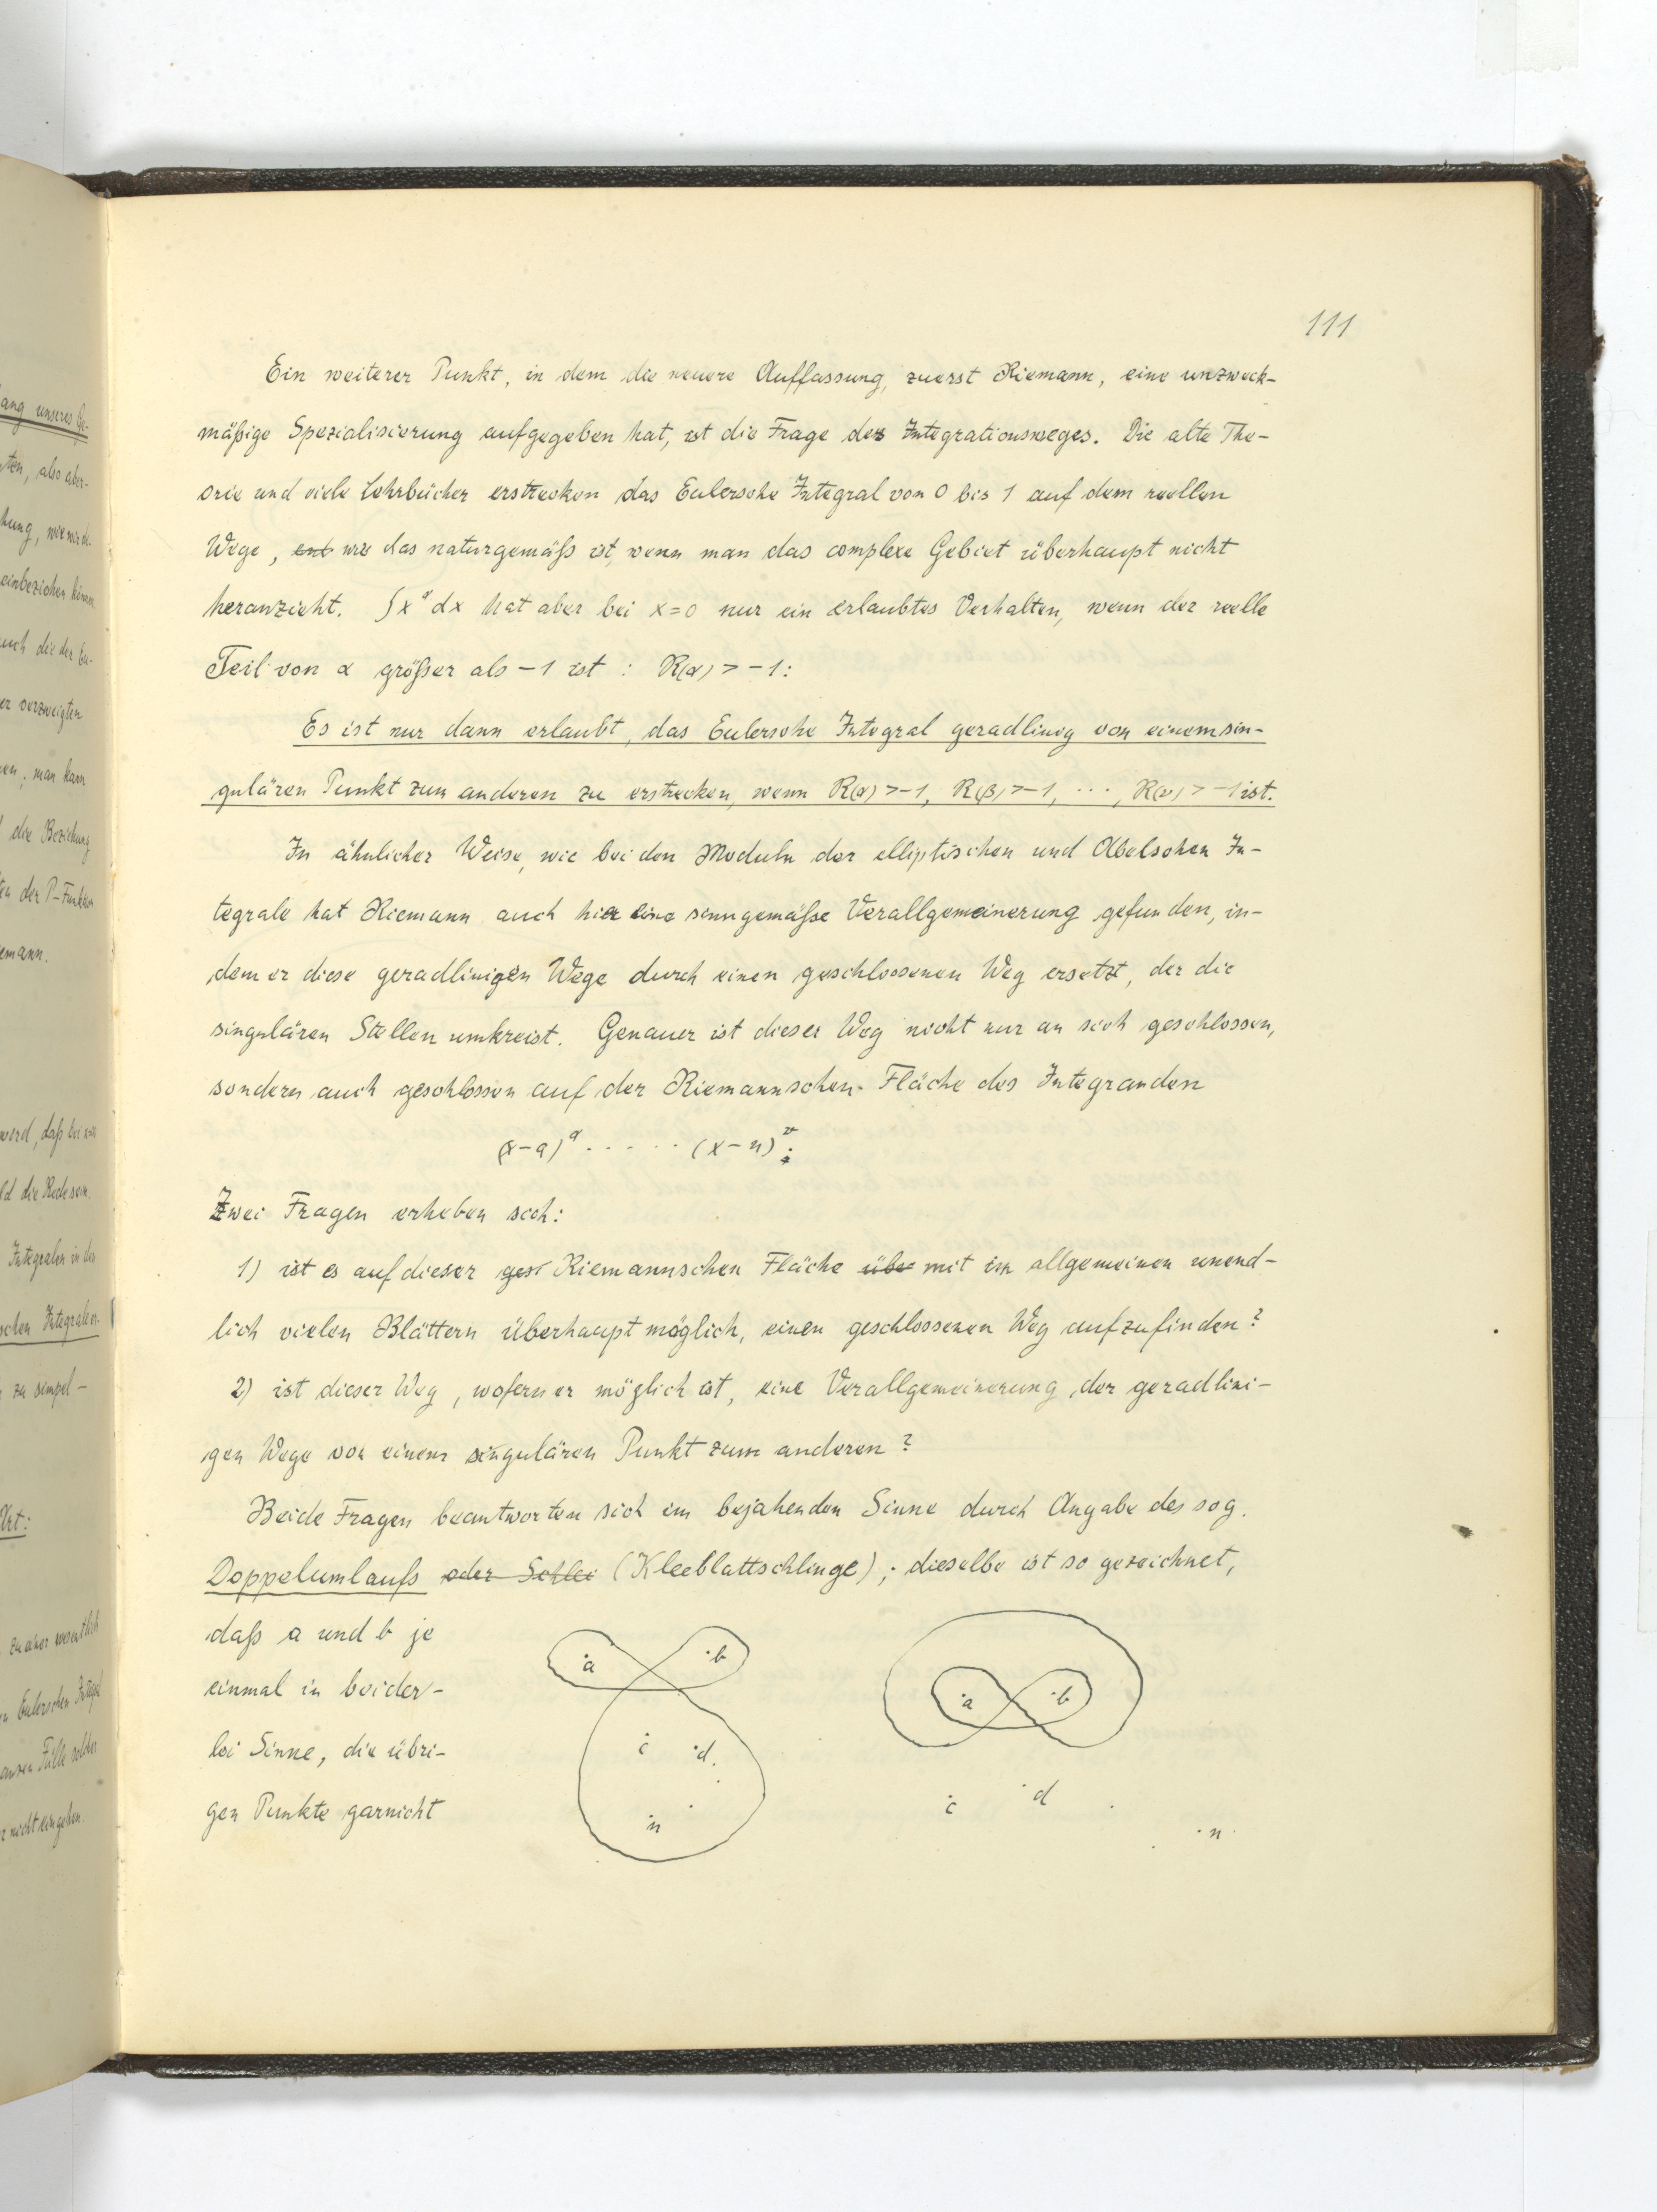 111
Ein weiterer Punkt, in dem die neuere Auffassung, zuerst Riemann, eine unzweck-
mäßige Spezialisierung aufgegeben hat, ist die Frage des Integrationsweges. Die alte The-
orie und viele Lehrbücher erstrecken das Eulersche Integral von 0 bis 1 auf dem reellen
Wege, ent wie das naturgemäß ist, wenn man das complexe Gebiet überhaupt nicht
heranzieht. ∫x^α dx hat aber bei x=0 nur ein erlaubtes Verhalten, wenn der reelle
Teil von α größer als -1 ist : R(α) > -1:
Es ist nur dann erlaubt, das Eulersche Integral geradlinig von einem sin-
gulären Punkt zum anderen zu erstrecken, wenn R(α) > -1, R(β) > -1, ..., R(ν) > -1 ist.
In ähnlicher Weise, wie bei den Moduln der elliptischen und Abelschen In-
tegrale hat Riemann auch hier eine sinngemäße Verallgemeinerung gefunden, in-
dem er diese geradlinigen Wege durch einen geschlossenen Weg ersetzt, der die
singulären Stellen umkreist. Genauer ist dieser Weg nicht nur an sich geschlossen,
sondern auch geschlossen auf der Riemannschen Fläche des Integranden
(x-a)^α ..... (x-n)^ν.
Zwei Fragen erheben sich:
1) ist es auf dieser ges Riemannschen Fläche über mit im allgemeinen unend-
lich vielen Blättern überhaupt möglich, einen geschlossenen Weg aufzufinden?
2) ist dieser Weg, wofern er möglich ist, eine Verallgemeinerung der geradlini-
gen Wege von einem singulären Punkt zum anderen?
Beide Fragen beantworten sich im bejahenden Sinne durch Angabe des sog.
Doppelumlaufs oder Schlei (Kleeblattschlinge); dieselbe ist so gezeichnet,
daß a und b je
einmal in beider-
lei Sinne, die übri-
gen Punkte garnicht
a b
c d
n
a b
c d
n
ang unseres Ge-
einbeziehen können
uch die der Eu-
er verzweigten
en; man kann
die Beziehung
en der P-Funktion
emann.
ld die Rede sein.
Integralen in den
schen Integralen
zu simpel-
Art:
Eulerschen Integral
nicht eingehen.